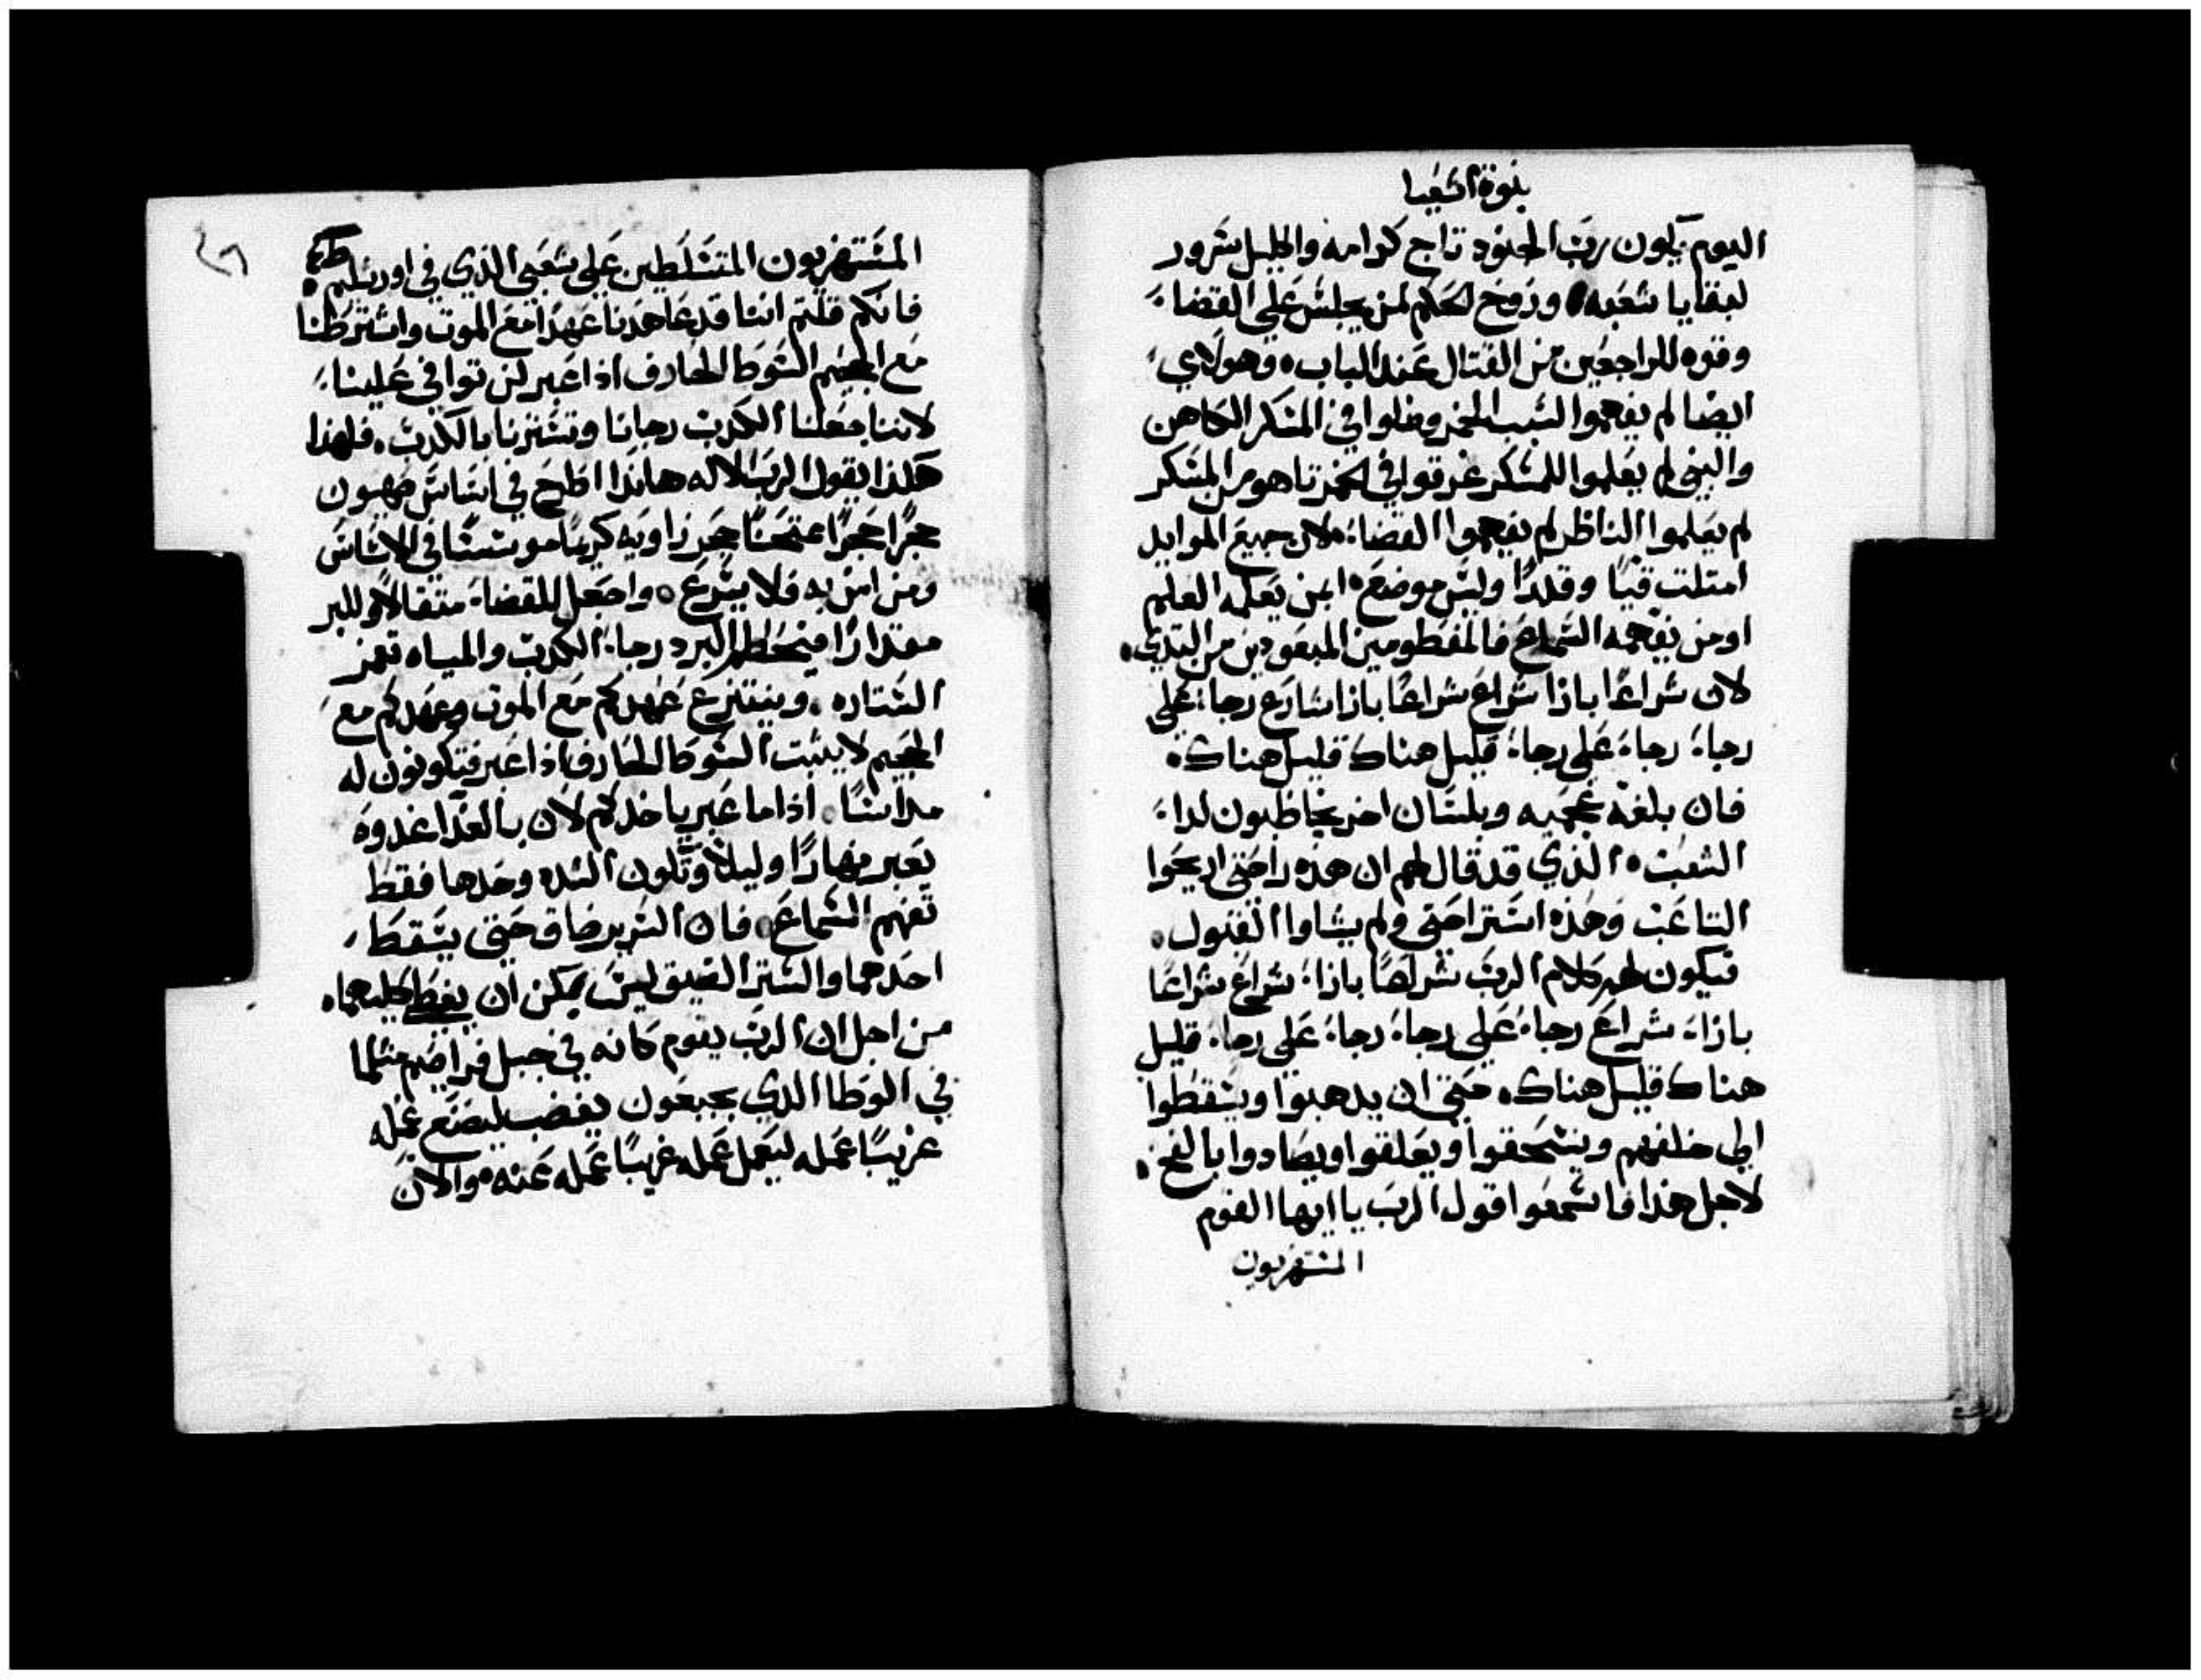 نبوة اشعيا
اليوم يكون رب الجنود تاج كرامه واكليل سرور
لبقايا شعبه وروح الحكم لمن يجلس علي القضاء
وقوه للراجعين من القتال عند الباب وهولاي
ايضا لم يفهموا لسبب الخمر وضلوا في المسكر الكاهن
والنبي لم يعلموا للسكر غرقوا في الخمر تاهو من المسكر
لم يعلموا الناظر لم يفهموا القضاء لان جميع الموايد
امتلت قيًا وقذرًا وليس موضع ابمن يعلمه العلم
او من يفهمه السماع فالمفطومين المبعودين من التدي
لان شراعًا بازا شراع شراعًا بازا شارع رجاء علي
رجاء رجاء علي رجاء قليل هناك قليل هناك
فان بلغة عجميه وبلسان اخر يخاطبون لداء
الشعب الذي قد قال لهم ان هذه راحتي اريحوا
التاعب وهذه استراحتي ولم يشاوا القبول
فيكون لهم كلام الرب شراعًا بازاء شراع شراعًا
بازاء شراع رجاء علي رجاء رجاء علي رجاء قليل
هناك قليل هناك حتي ان يدهبوا ويسقطوا
الي خلفهم وينسحقوا ويعلقوا ويصادوا بالفخ
لاجل هذا فاسمعوا قول الرب يا ايها القوم
المستهزيون
المستهزيون المتسلطين علي شعبي الذي في اورشليم
فانكم قلتم اننا قد عاهدنا عهدًا مع الموت واشترطنا
مع الجحيم السوط الجارف اذا عبر لن توافي علينا
لاننا جعلنا الكدب رجانا وتسترنا بالكدب فلهذا
هكذا يقول الرب الاله هانذا اطرح في اساس صهيون
حجرًا حجرًا ممتحنًا حجر زاويه كريمًا موسسًا في الاساس
ومن امن به فلا يسرع واجعل للقضاء متقالاً وللبر
مقدارًا فيحطم البرد رجاء الكدب والمياه تغمر
الستاره وينتزع عهدكم مع الموت وعهدكم مع
الجحيم لا يثبت السوط الجارف اذا عبر فتكونون له
مداسًا اذا ما عبر ياخدكم لان بالغدا غدوه
يعبر نهارًا وليلاً وتكون الشده وحدها فقط
تفهم السماع فان السرير ضاق حتي يسقط
احدهما والستر الضيق ليس يمكن ان يغطي كليهما
من اجل ان الرب يقوم كانه في جبل فراضيم مثلما
في الوطا الذي بجبعون يغضب ليصنع عمله
غريبًا عمله ليعمل عمله غريبًا عمله عنه والان